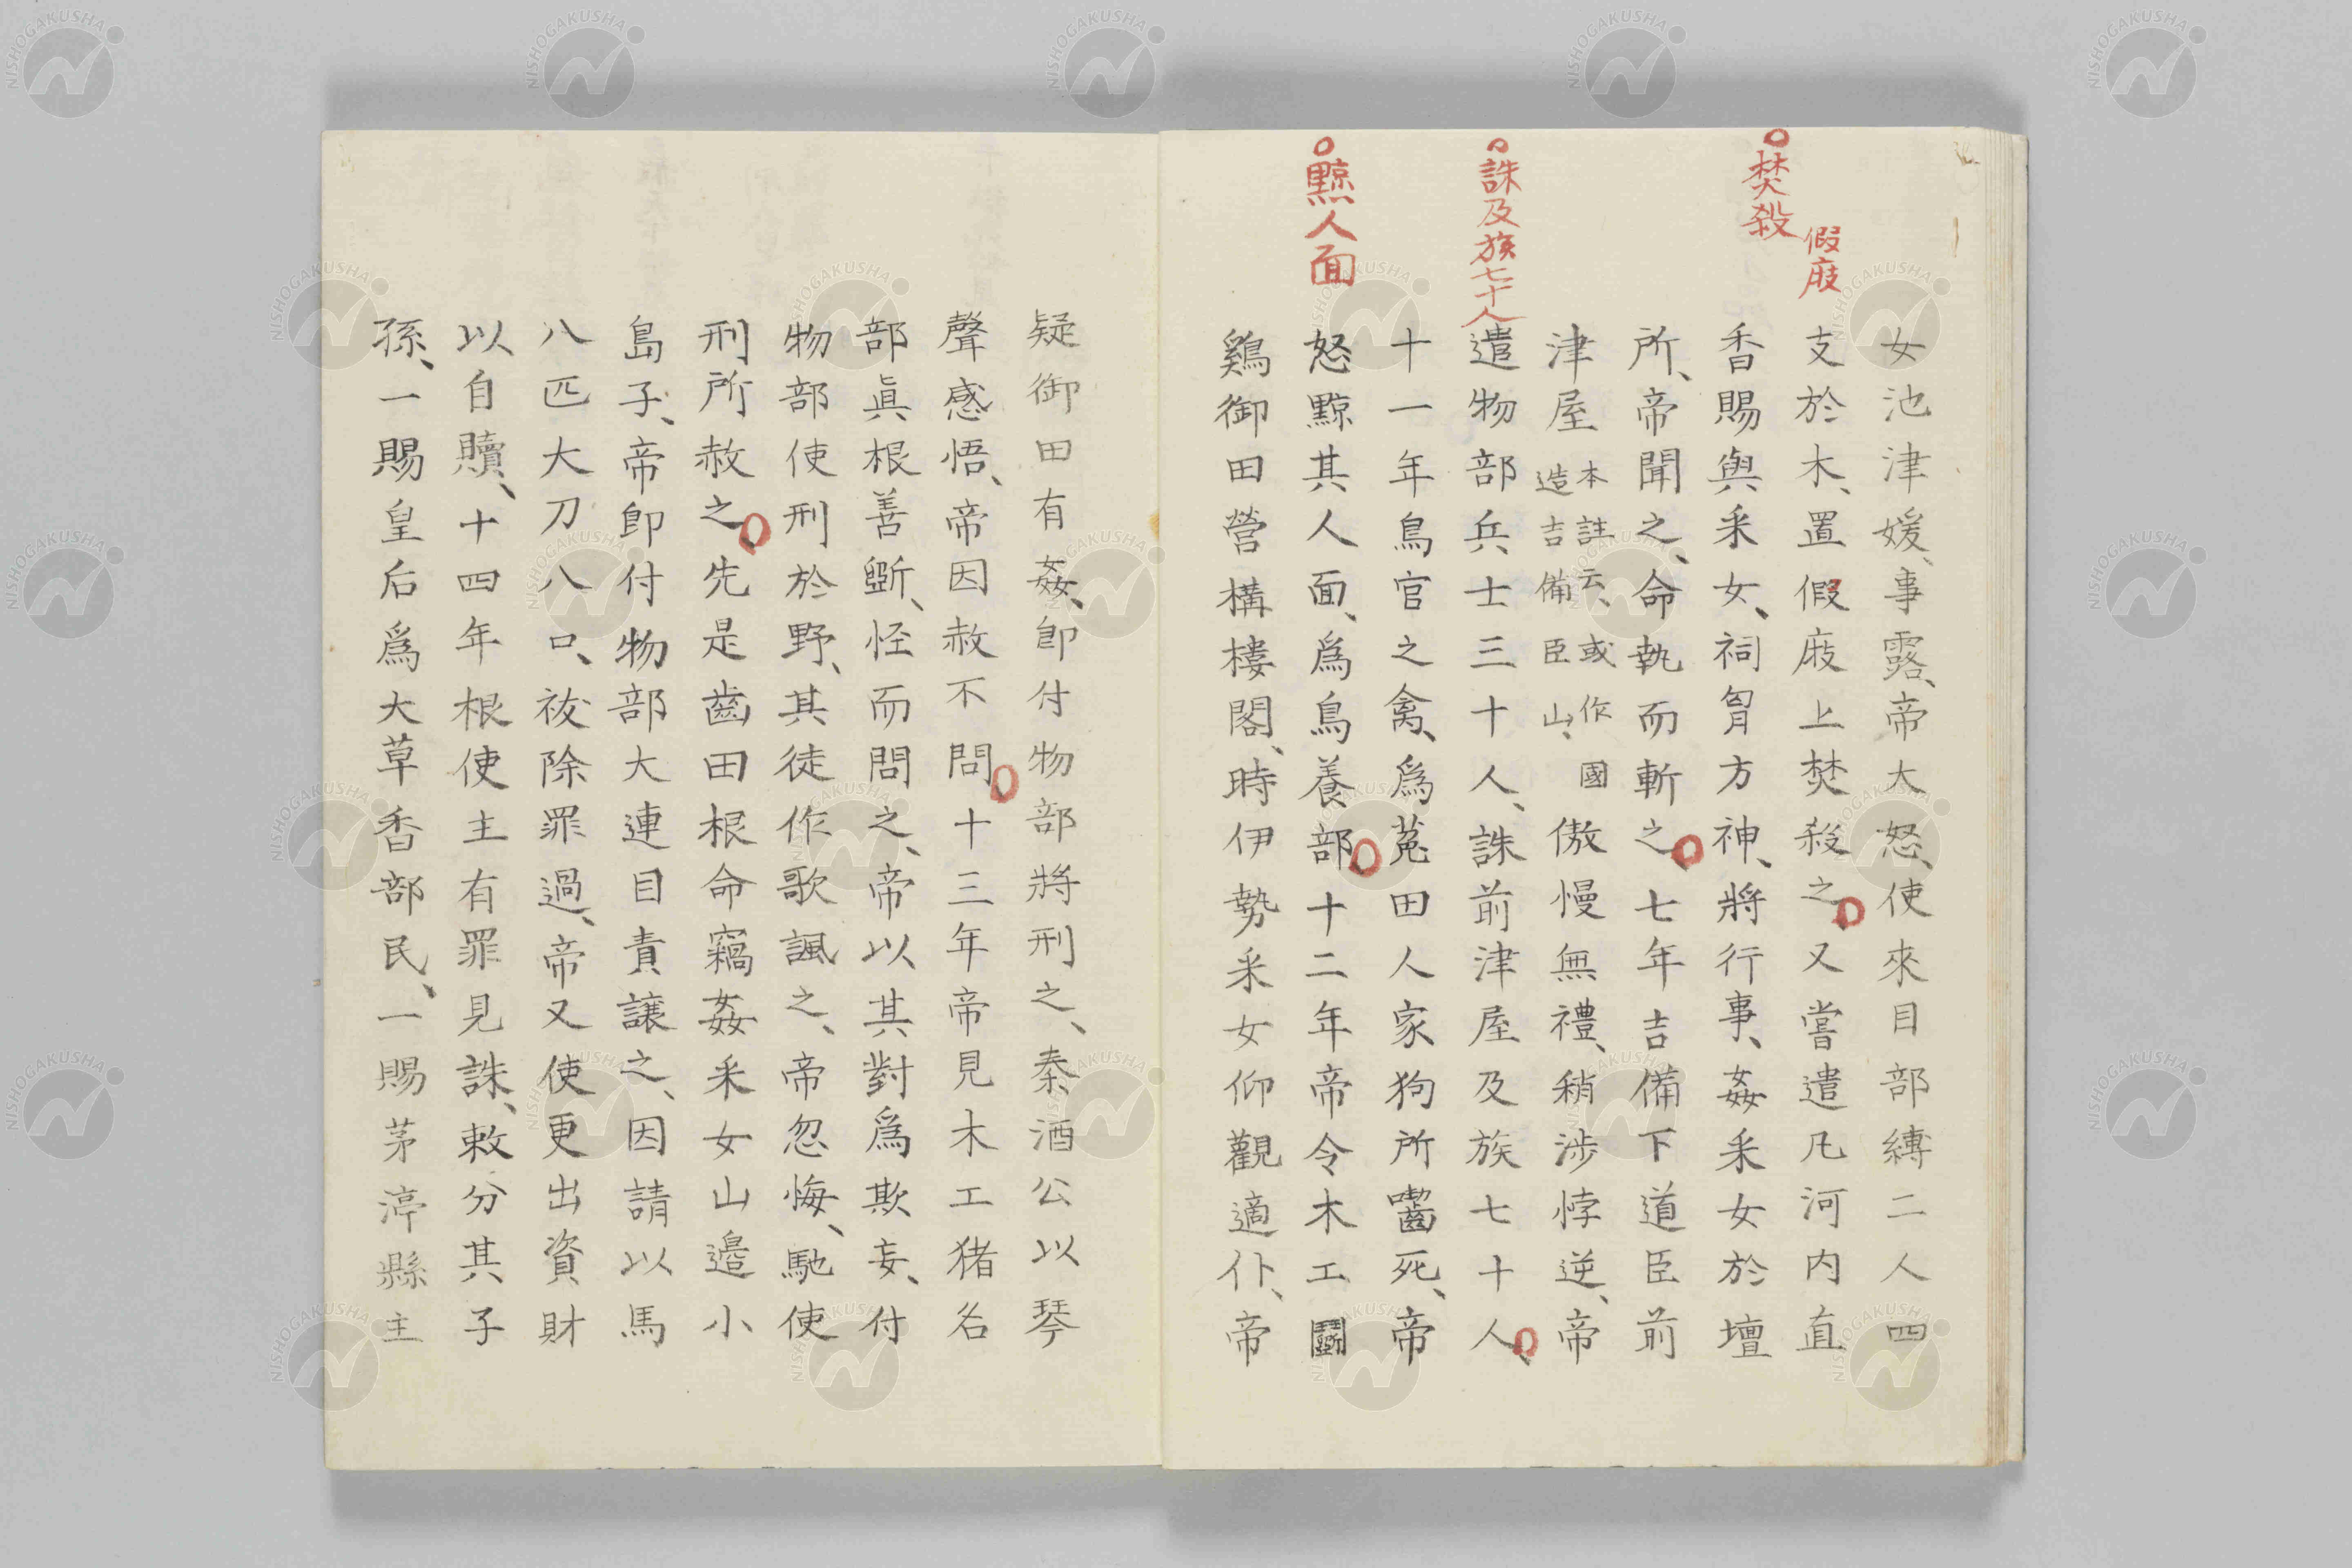 假庪
○焚殺
○誅及族七十人
○黥人面
女池津媛、事露、帝大怒、使來目部縛二人四
支於木、置假庪上焚殺之○又嘗遣凡河内直
香賜與采女、祠胷方神、將行事、姦采女於壇
所、帝聞之、命執而斬之○七年吉備下道臣前
津屋本註云、或作國造吉備臣山、傲慢無禮、稍涉悖逆、帝
遣物部兵士三十人、誅前津屋及族七十人○
十一年鳥官之禽、爲菟田人家狗所囓死、帝
怒黥其人面、爲鳥養部○十二年帝令木工鬪
鷄御田營構樓閣、時伊勢采女仰觀適仆、帝
疑御田有姦、卽付物部將刑之、秦酒公以琴
聲感悟、帝因赦不問○十三年帝見木工猪名
部眞根善斲、怪而問之、帝以其對爲欺妄、付
物部使刑於野、其徒作歌諷之、帝忽悔、馳使
刑所赦之○先是齒田根命竊姦采女山邉小
島子、帝卽付物部大連目責讓之、因請以馬
八匹大刀八口、祓除罪過、帝又使更出資財
以自贖、十四年根使主有罪見誅、敕分其子
孫、一賜皇后爲大草香部民、一賜茅渟縣主
NISHOGAKUSHA